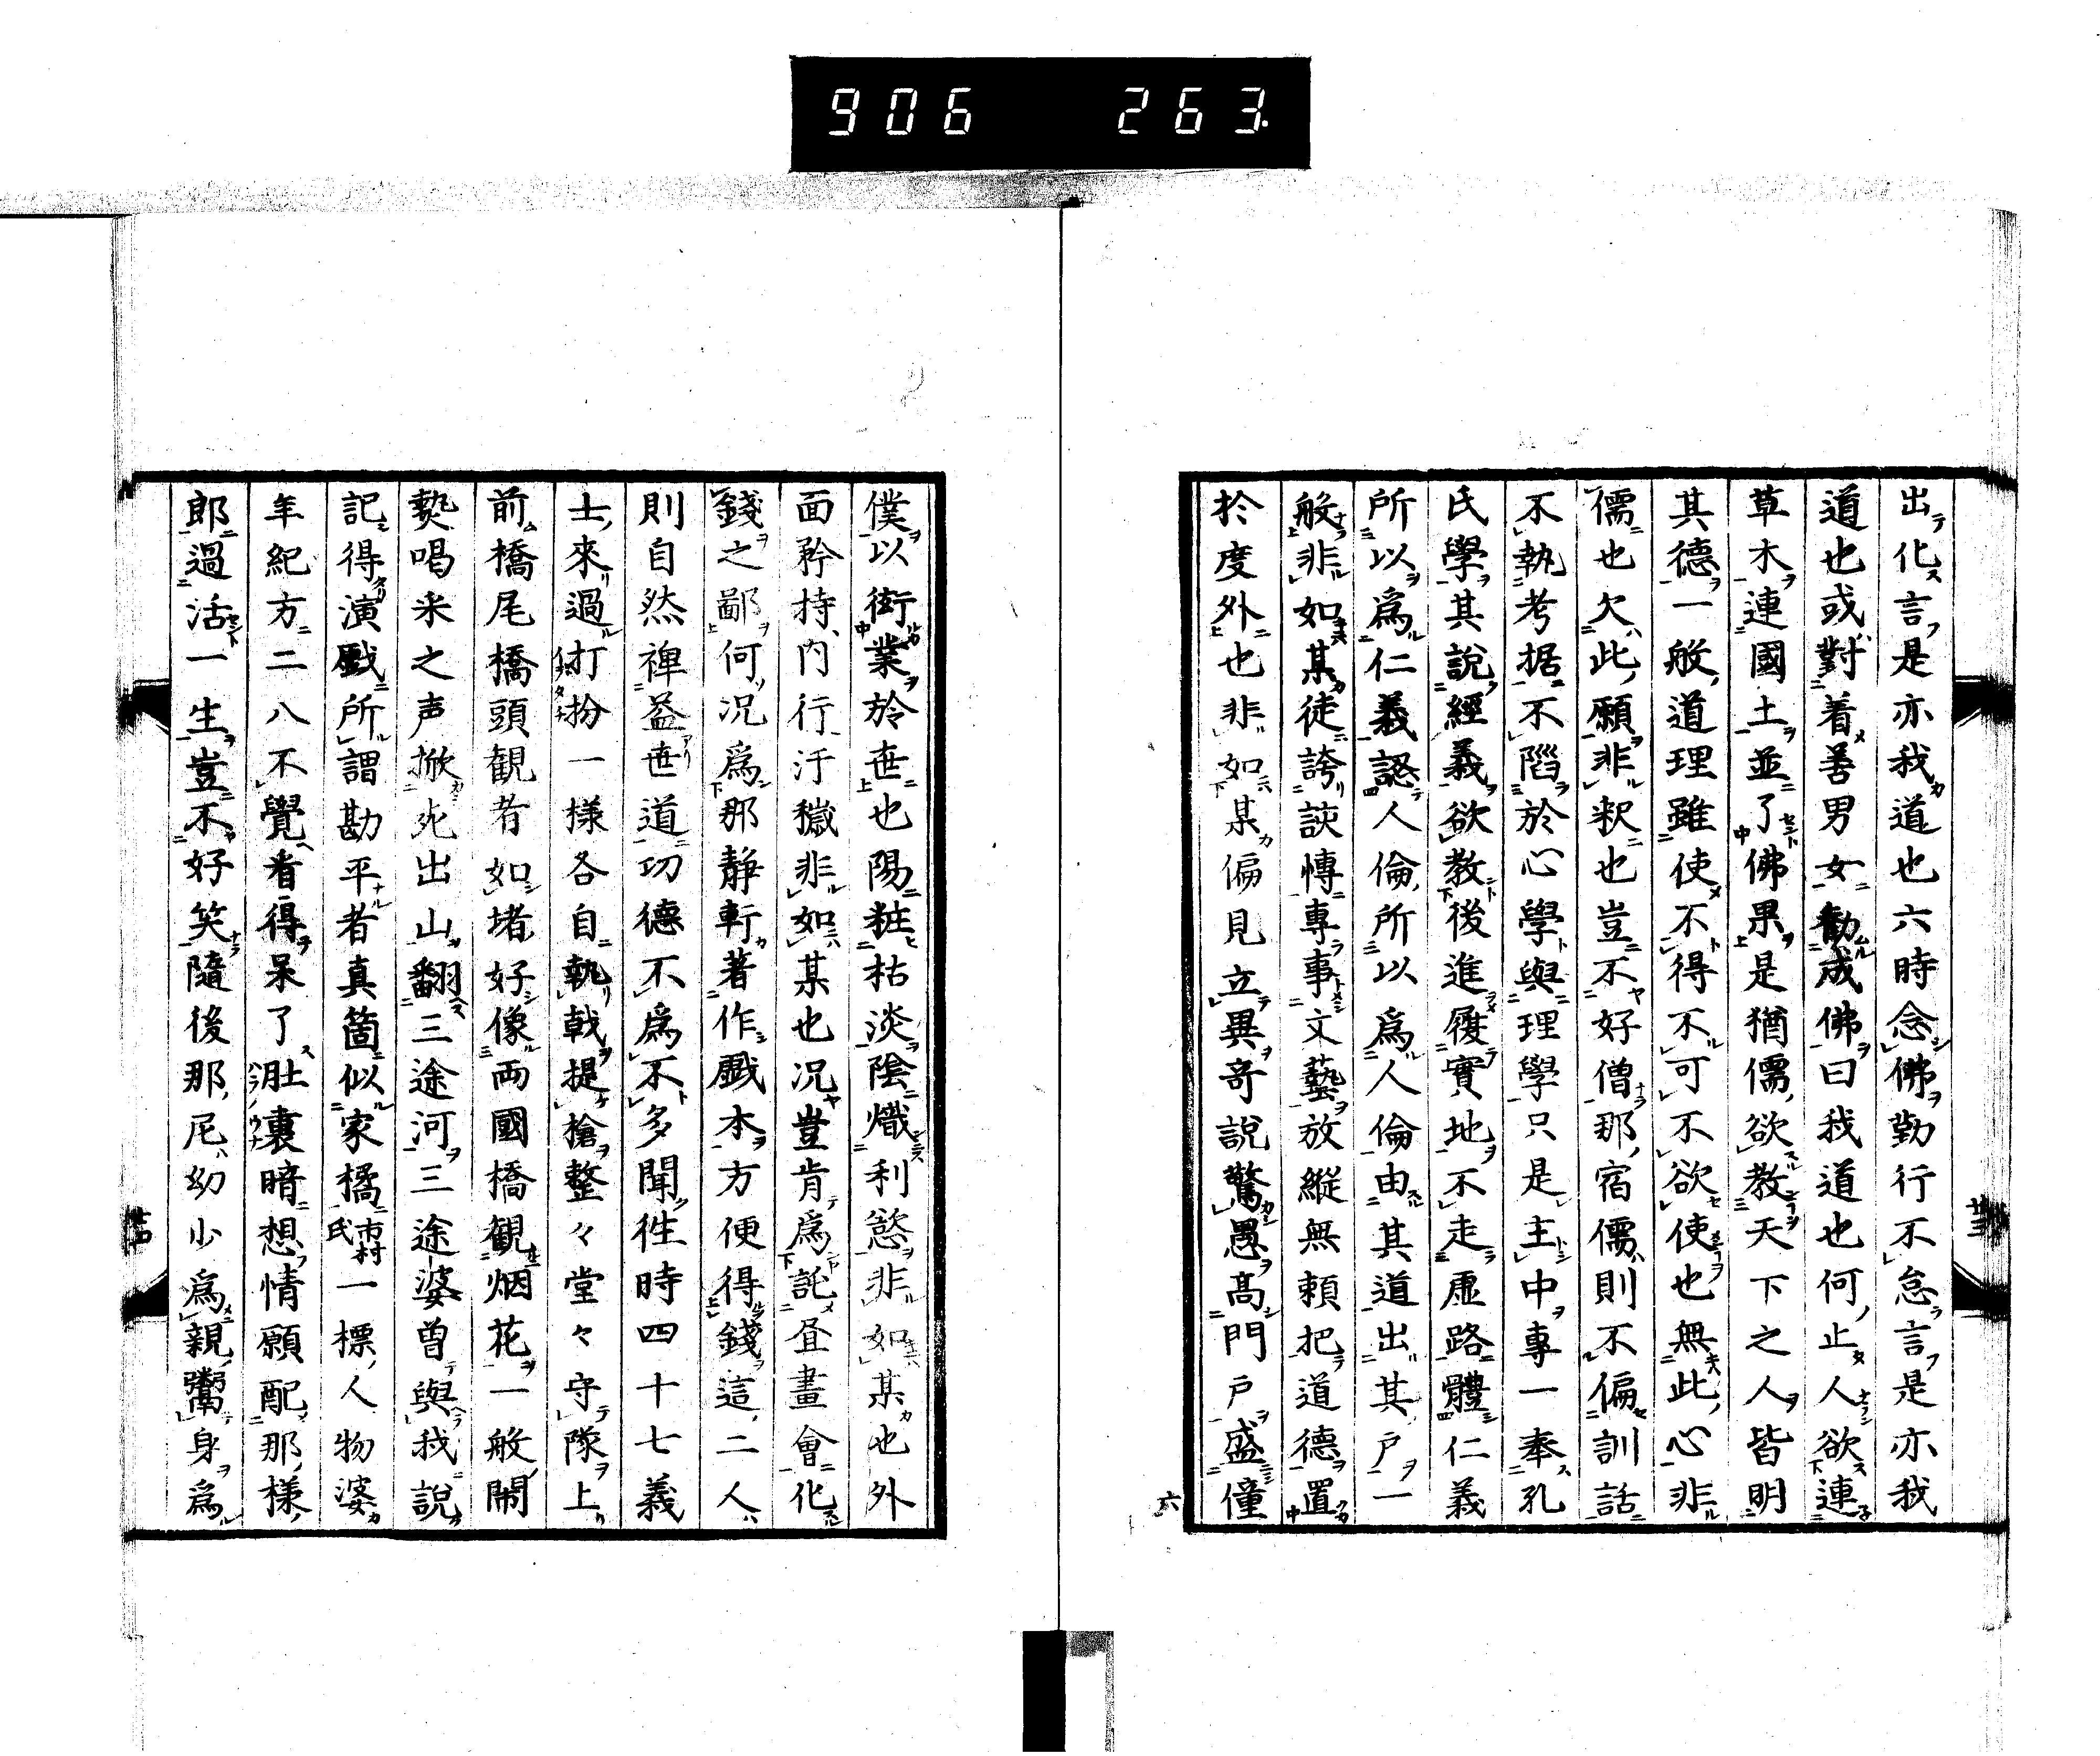 906 263.
出化言是亦我道也六時念佛勤行不怠言是亦我
道也或對着善男女勸成佛曰我道也何止人欲連
草木連國土並了佛果是猶儒欲教天下之人皆明
其德一般道理雖使不得不可不欲使也無此心非
儒也欠此願非釈也豈不好僧那宿儒則不偏訓話
不執考据不陷於心學與理學只是主中專一奉孔
氏學其說經義欲教後進履實地不走虛路體仁義
所以爲仁義認人倫所以爲人倫由其道出其戸一
般非如某徒誇談慱專事文藝放縱無頼把道德置
於度外也非如某偏見立異奇說驚愚髙門戸盛僮
僕以衒業於世也陽粧枯淡陰熾利慾非如某也外
面矜持内行汙穢非如某也况豈肯爲託昼畫會化
錢之鄙何况爲那靜軒著作戲本方便得錢這二人
則自然裨益世道功德不爲不多聞徃時四十七義
士來過打扮一樣各自執戟提槍整々堂々守隊上
前橋尾橋頭観者如堵好像両國橋観烟花一般閙
熱喝采之声掀死出山翻三途河三途婆曽與我說
記得演戲所謂勘平者真箇似家橘市村氏一標人物婆
年紀方二八不覺看得呆了肚裏暗想情願配那樣
郎過活一生豈不好笑隨後那尼幼少爲親鬻身爲
廿三
廿四
六